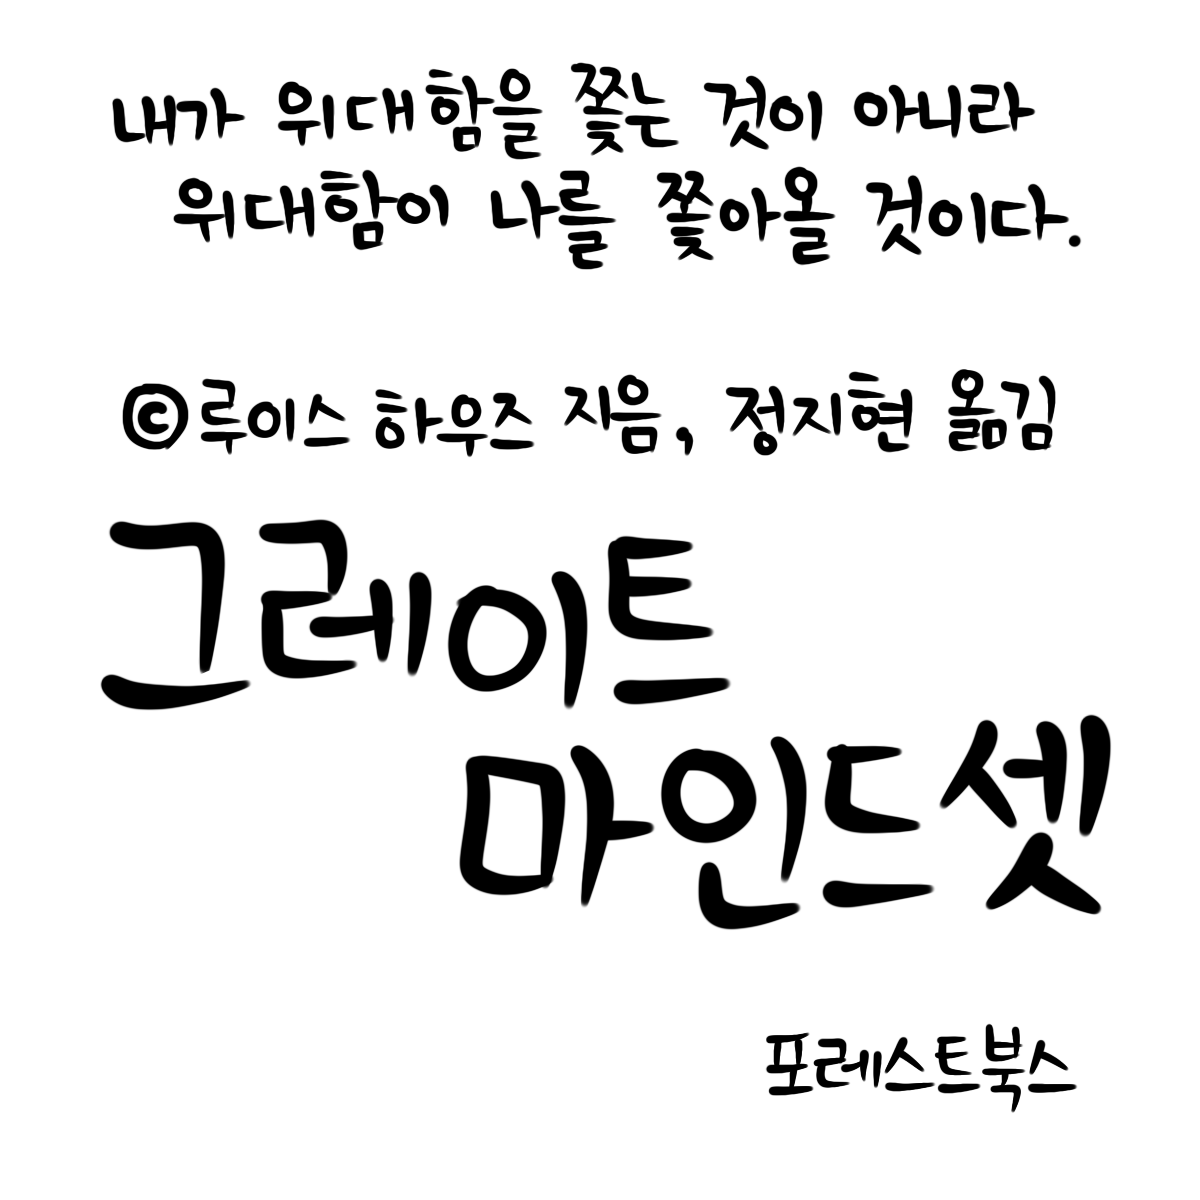 내가 위대함을 쫓는 것이 아니라
위대함이 나를 쫓아올 것이다.
©루이스 하우즈 지음, 정지현 옮김
그레이트
마인드셋
포레스트북스